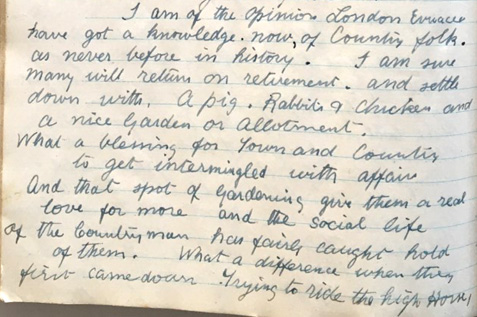 I am of the opinion London Evacees
have got a knowledge. now, of Country folk.
as never before in history. I am sure
many will return on retirement. and settle
down with. A pig. Rabbits & Chicken and
a nice Garden or Allotment.
What a blessing for Town and Country
to get intermingled with affairs
And that spot of gardening give them a real
love for more and the social life
of the Countryman has fairly caught hold
of them. What a difference when they
first came down. Trying to ride the high Horse,